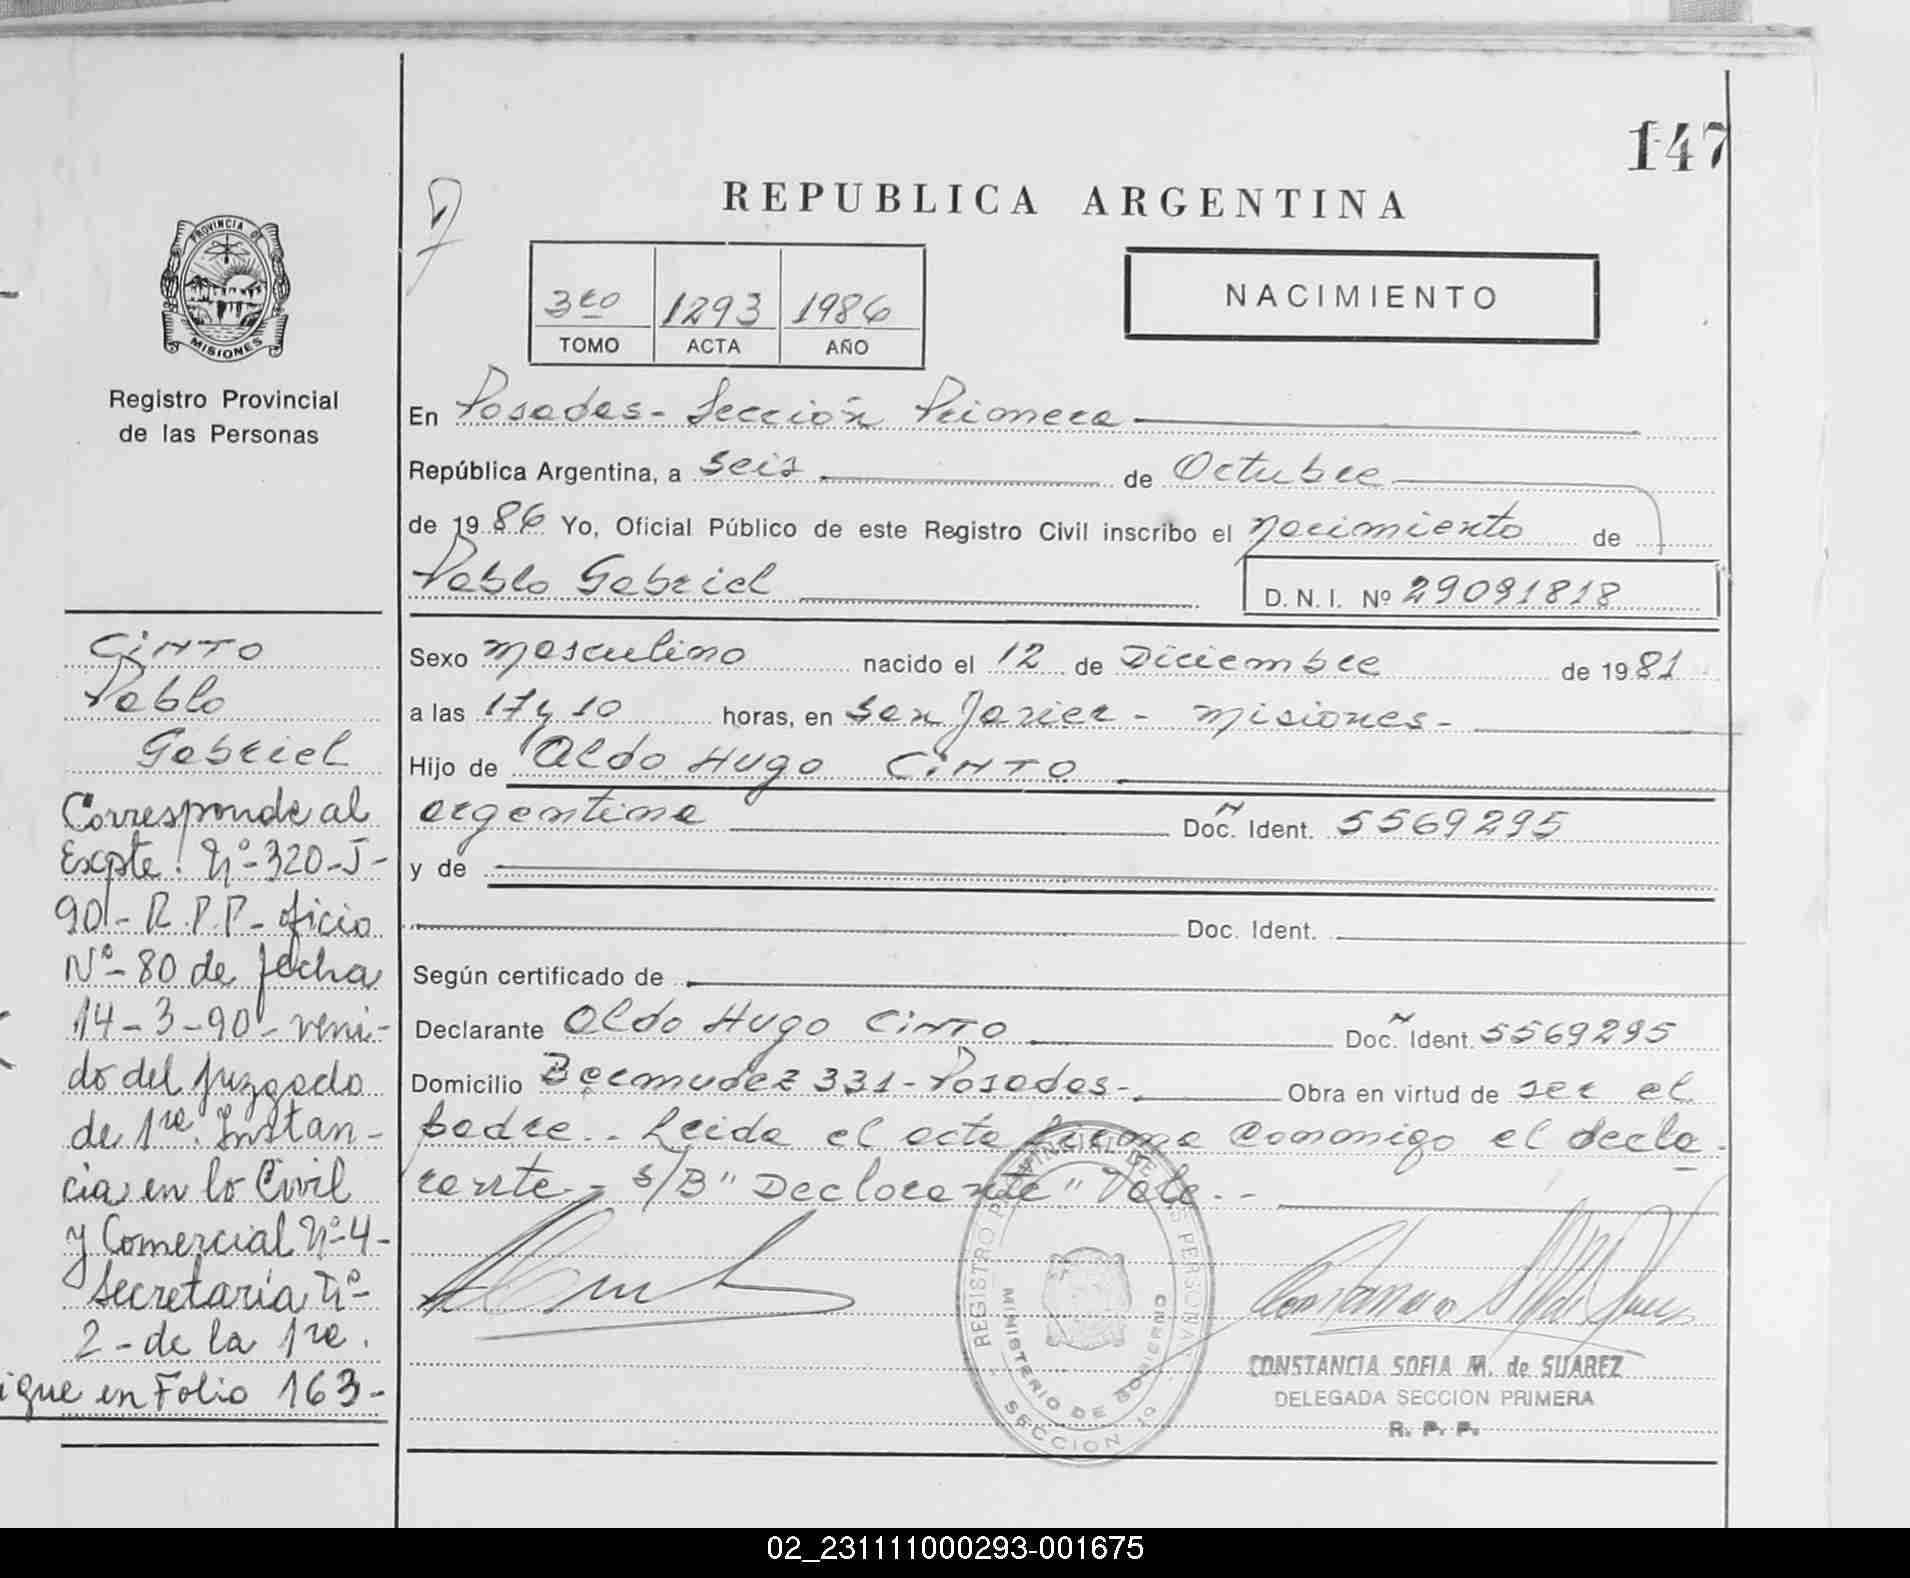 147
REPUBLICA ARGENTINA
PROVINCIA DE
MISIONES
Registro Provincial
de las Personas
3ro 1293 1986
TOMO ACTA AÑO
NACIMIENTO
En Posadas - Sección Primera
República Argentina, a seis de Octubre
de 1986 Yo, Oficial Público de este Registro Civil inscribo el nacimiento de
Pablo Gabriel D. N. I. Nº 29091818
Sexo masculino nacido el 12 de Diciembre de 1981
a las 17 y 10 horas, en San Javier - Misiones -
Hijo de Aldo Hugo CINTO
argentina Doc. Ident. 5569295
y de
Doc. Ident.
Según certificado de
Declarante Aldo Hugo CINTO Doc. Ident. 5569295
Domicilio Bermudez 331 - Posadas - Obra en virtud de ser el
padre.. Leida el acta firma conmigo el decla-
rante - S/B "Declarante" Vale. -
CONSTANCIA SOFIA M. de SUAREZ
DELEGADA SECCION PRIMERA
R. P. P.
REGISTRO PROVINCIAL DE LAS PERSONAS
MINISTERIO DE GOBIERNO
SECCION 1º
CINTO
Pablo
Gabriel
Corresponde al
Expte. Nº-320-J-
90- R.P.P- oficio
Nº-80 de fecha
14-3-90- veni-
do del Juzgado
de 1ra. Instan-
cia en lo Civil
y Comercial Nº-4-
Secretaria Nº-
2-de la 1ra.
igue en Folio 163-
02_231111000293-001675